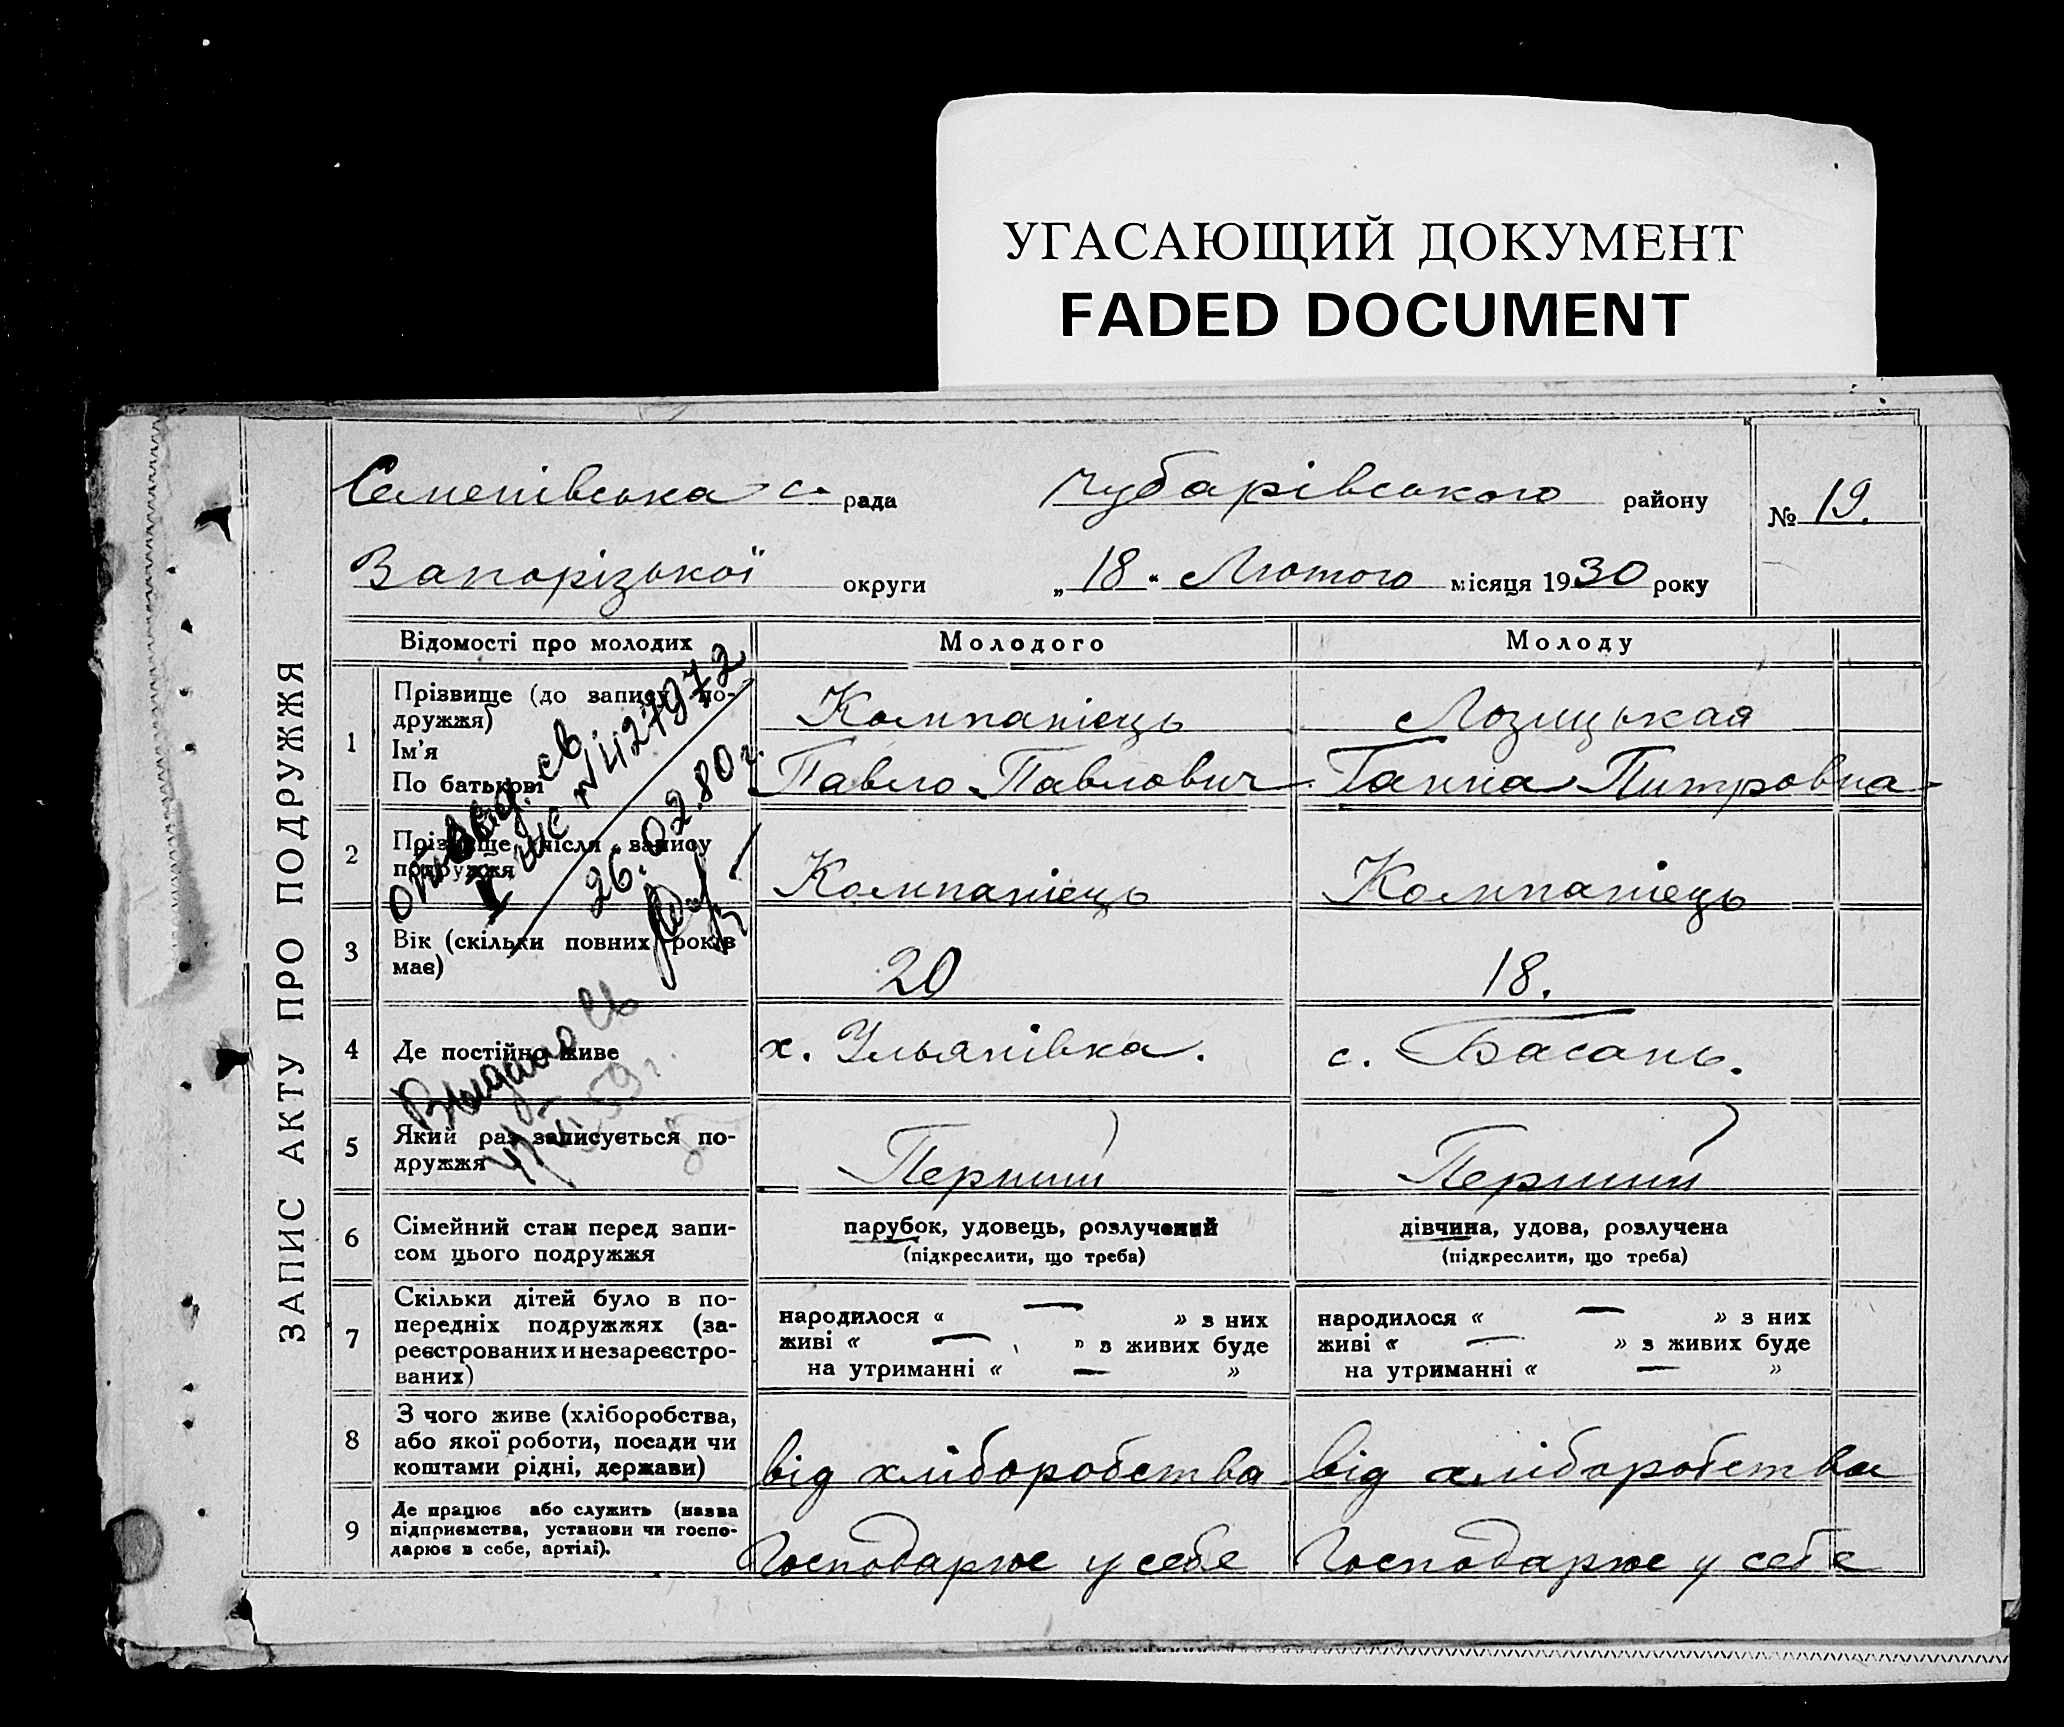 УГАСАЮЩИЙ ДОКУМЕНТ
FADED DOCUMENT
ЗАПИС АКТУ ПРО ПОДРУЖЖЯ
Семенівська с. рада Чубарівського району № 19.
Запорізької округи „ 18 “ Лютого місяця 1930 року
Відомості про молодих Молодого Молоду
1 Прізвище (до запису по-
дружжя) Компаніець Лозицькая
Ім'я
По батькові Павло Павлович Ганна Питровна
2 Прізвище після запису
подружжя Компаніець Компаніець
3 Вік (скільки повних років
має) 20 18.
4 Де постійно живе х. Ульянівка. с. Басань.
5 Який раз записується по-
дружжя Перший Перший
6 Сімейний стан перед запи-
сом цього подружжя
парубок, удовець, розлучений
(підкреслити, що треба)
дівчина, удова, розлучена
(підкреслити, що треба)
7 Скільки дітей було в по-
передніх подружжях (за-
реєстрованих и незареєстро-
ваних)
народилося « — » з них
живі « — » з живих буде
на утриманні « — »
народилося « — » з них
живі « — » з живих буде
на утриманні « — »
8 З чого живе (хліборобства,
або якої роботи, посади чи
коштами рідні, держави) від хліборобства від хліборобства
9 Де працює або служить (назва
підприємства, установи чи госпо-
дарює в себе, артілі). Господарює у себе Господарює у себе
св.
№ 427972
26.02.80 г.
Выдано св